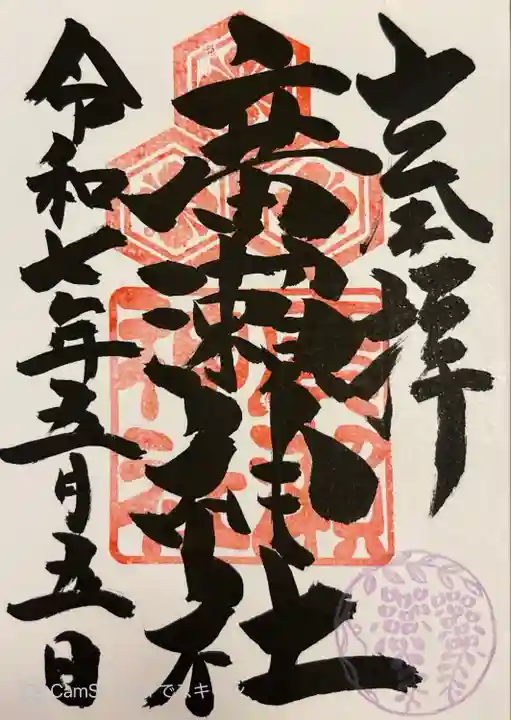 奉拝
廣瀬神社
令和七年五月五日
CamS
でスキャン